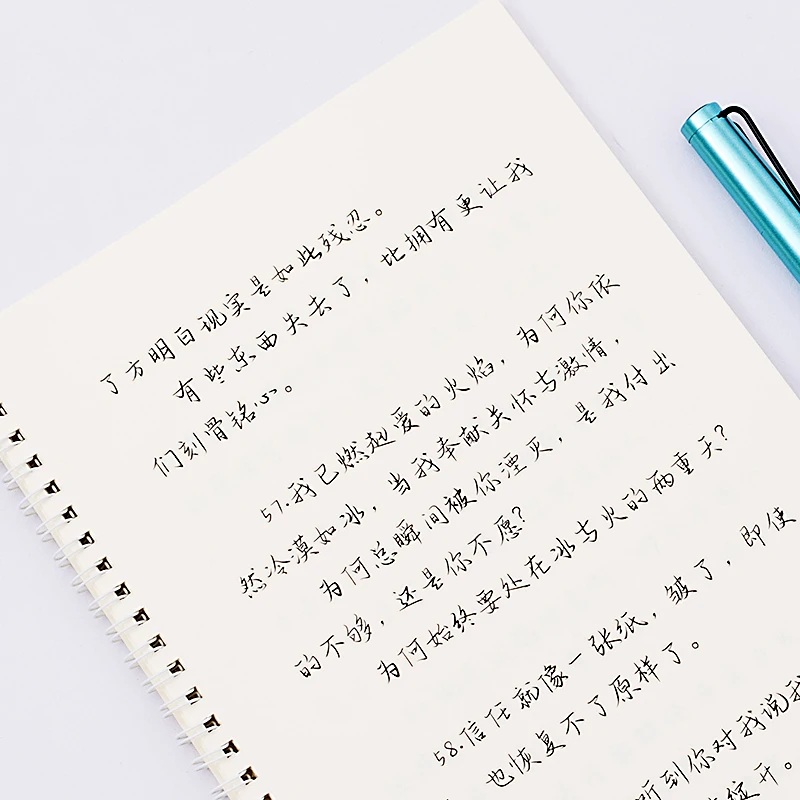 了方明白现实是如此残忍。
有些东西失去了，比拥有更让我
们刻骨铭心。
57.我已燃起爱的火焰，为何你依
然冷漠如冰，当我奉献关怀与激情，
为何总瞬间被你湮灭，是我付出
的不够，还是你不愿？
为何始终要处在冰与火的两重天？
58.信任就像一张纸，皱了，即使
也恢复不了原样了。
听到你对我说我
绽开。